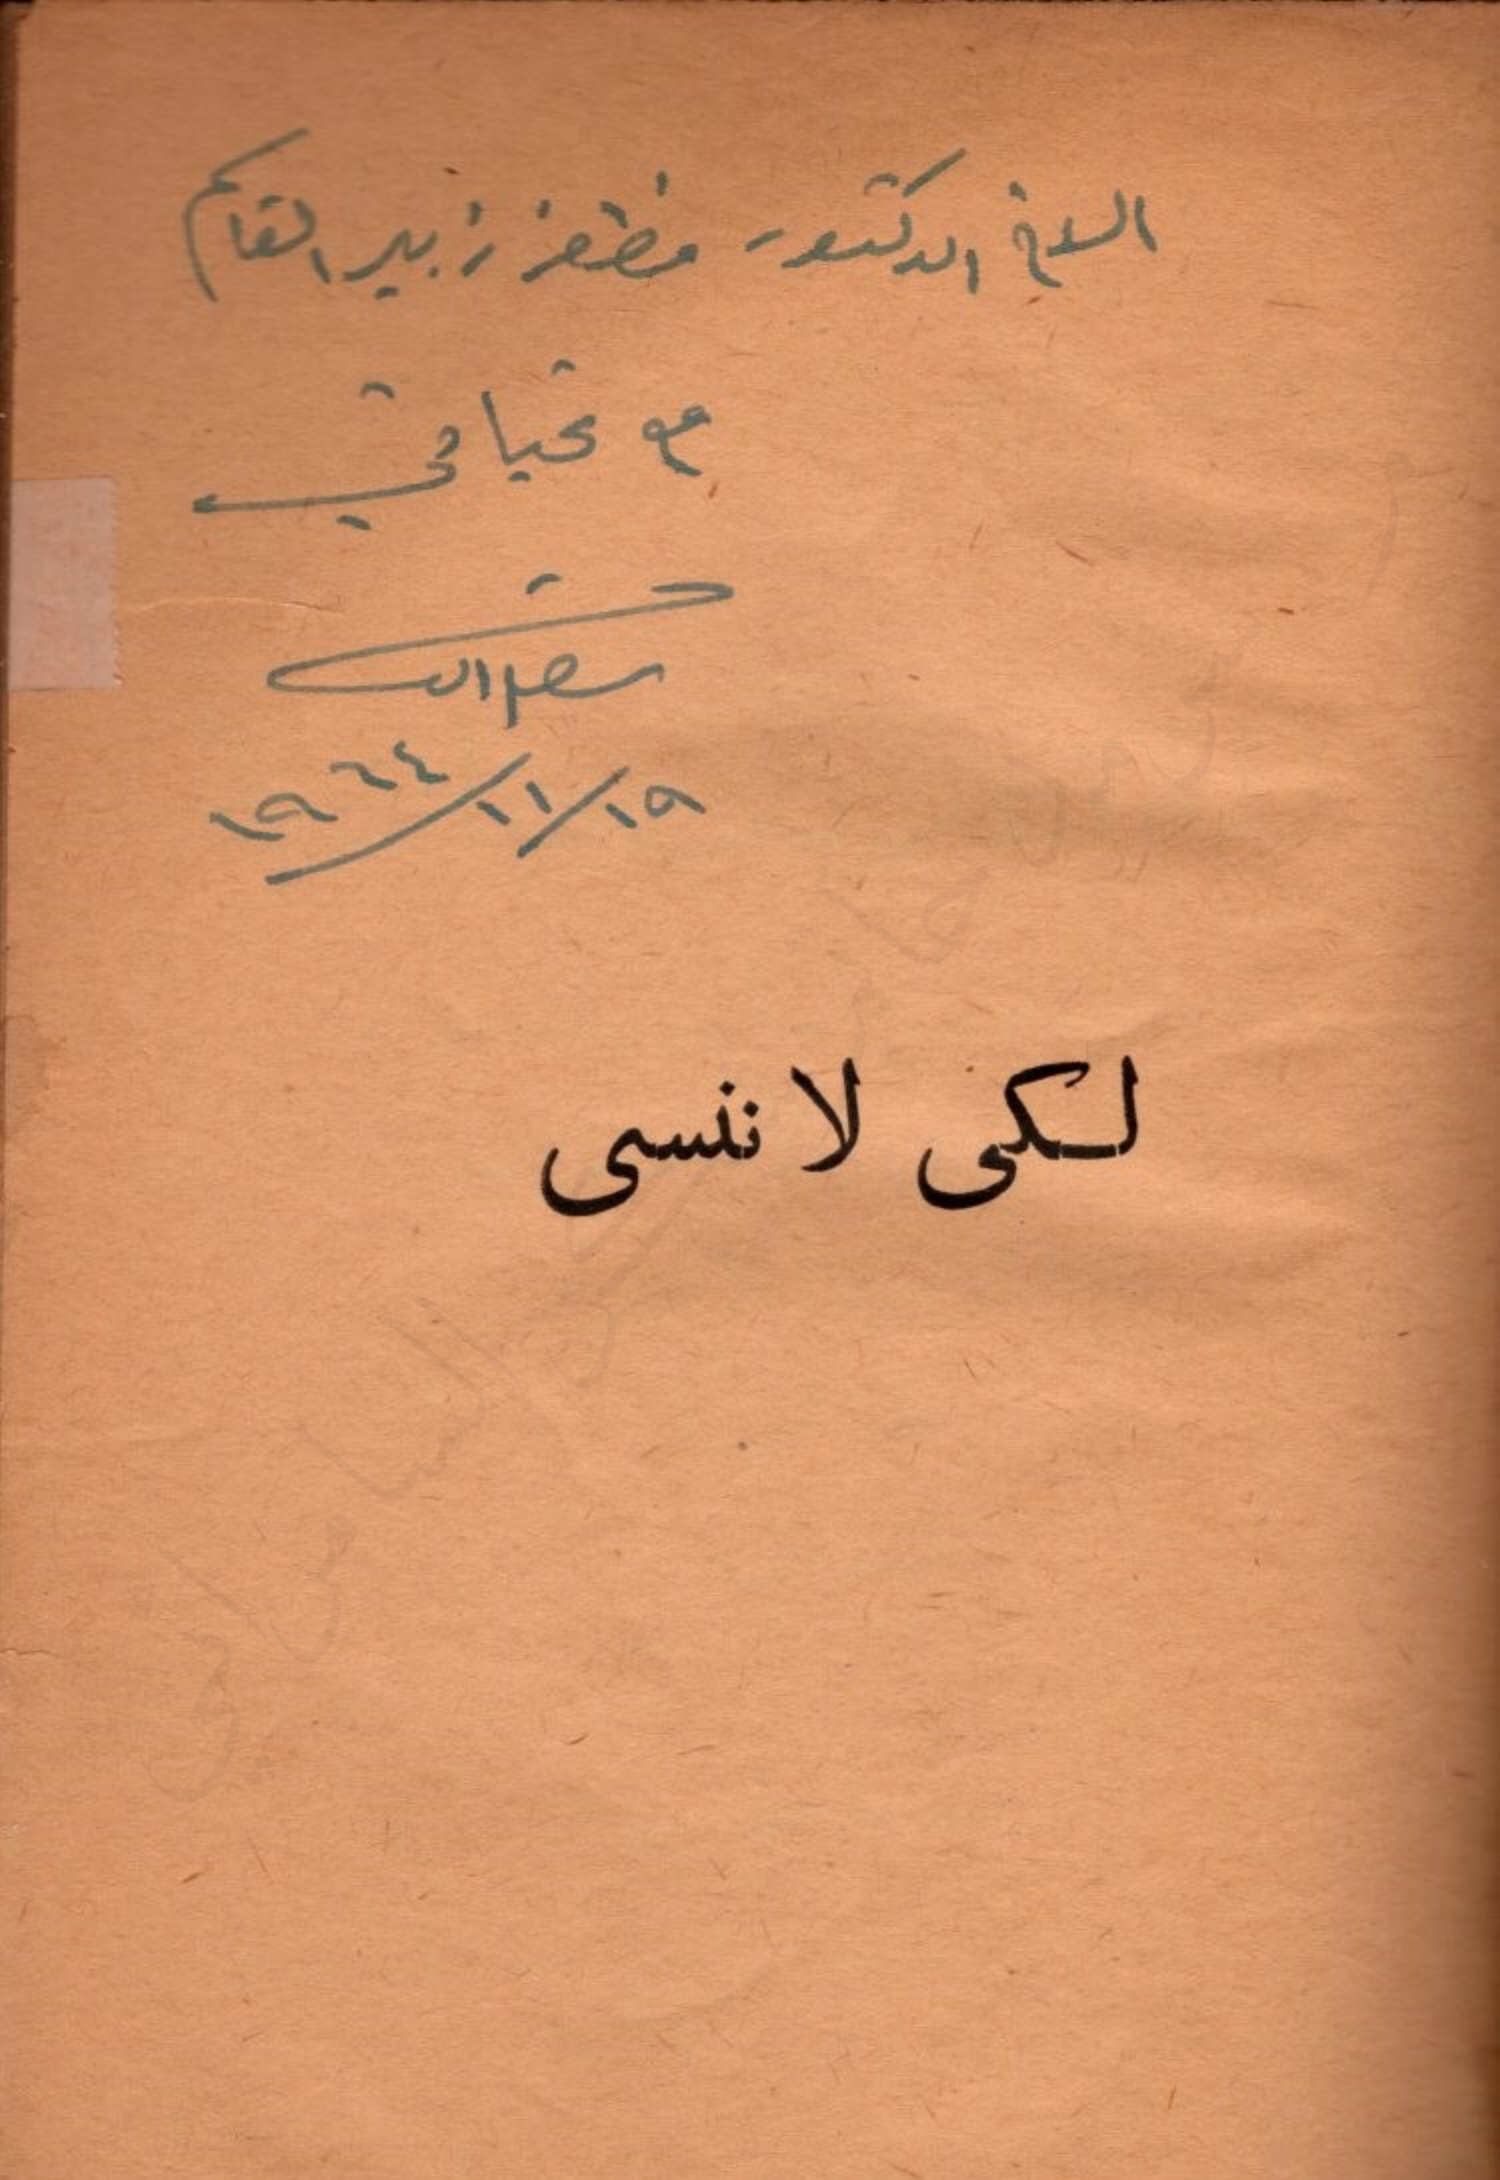 الاخ الدكتور مظفر زبير القاسم
مع تحياتي
١٩٦٤/١١/١٩
لكى لا ننسى